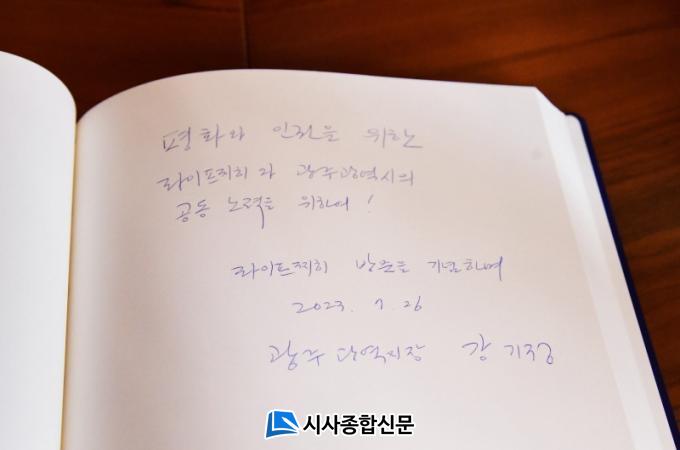 평화와 인권을 위한
라이프찌히와 광주광역시의
공동 노력을 위하여!
라이프찌히 방문을 기념하며
2023. 7. 26
광주광역시장 강기정
시사종합신문